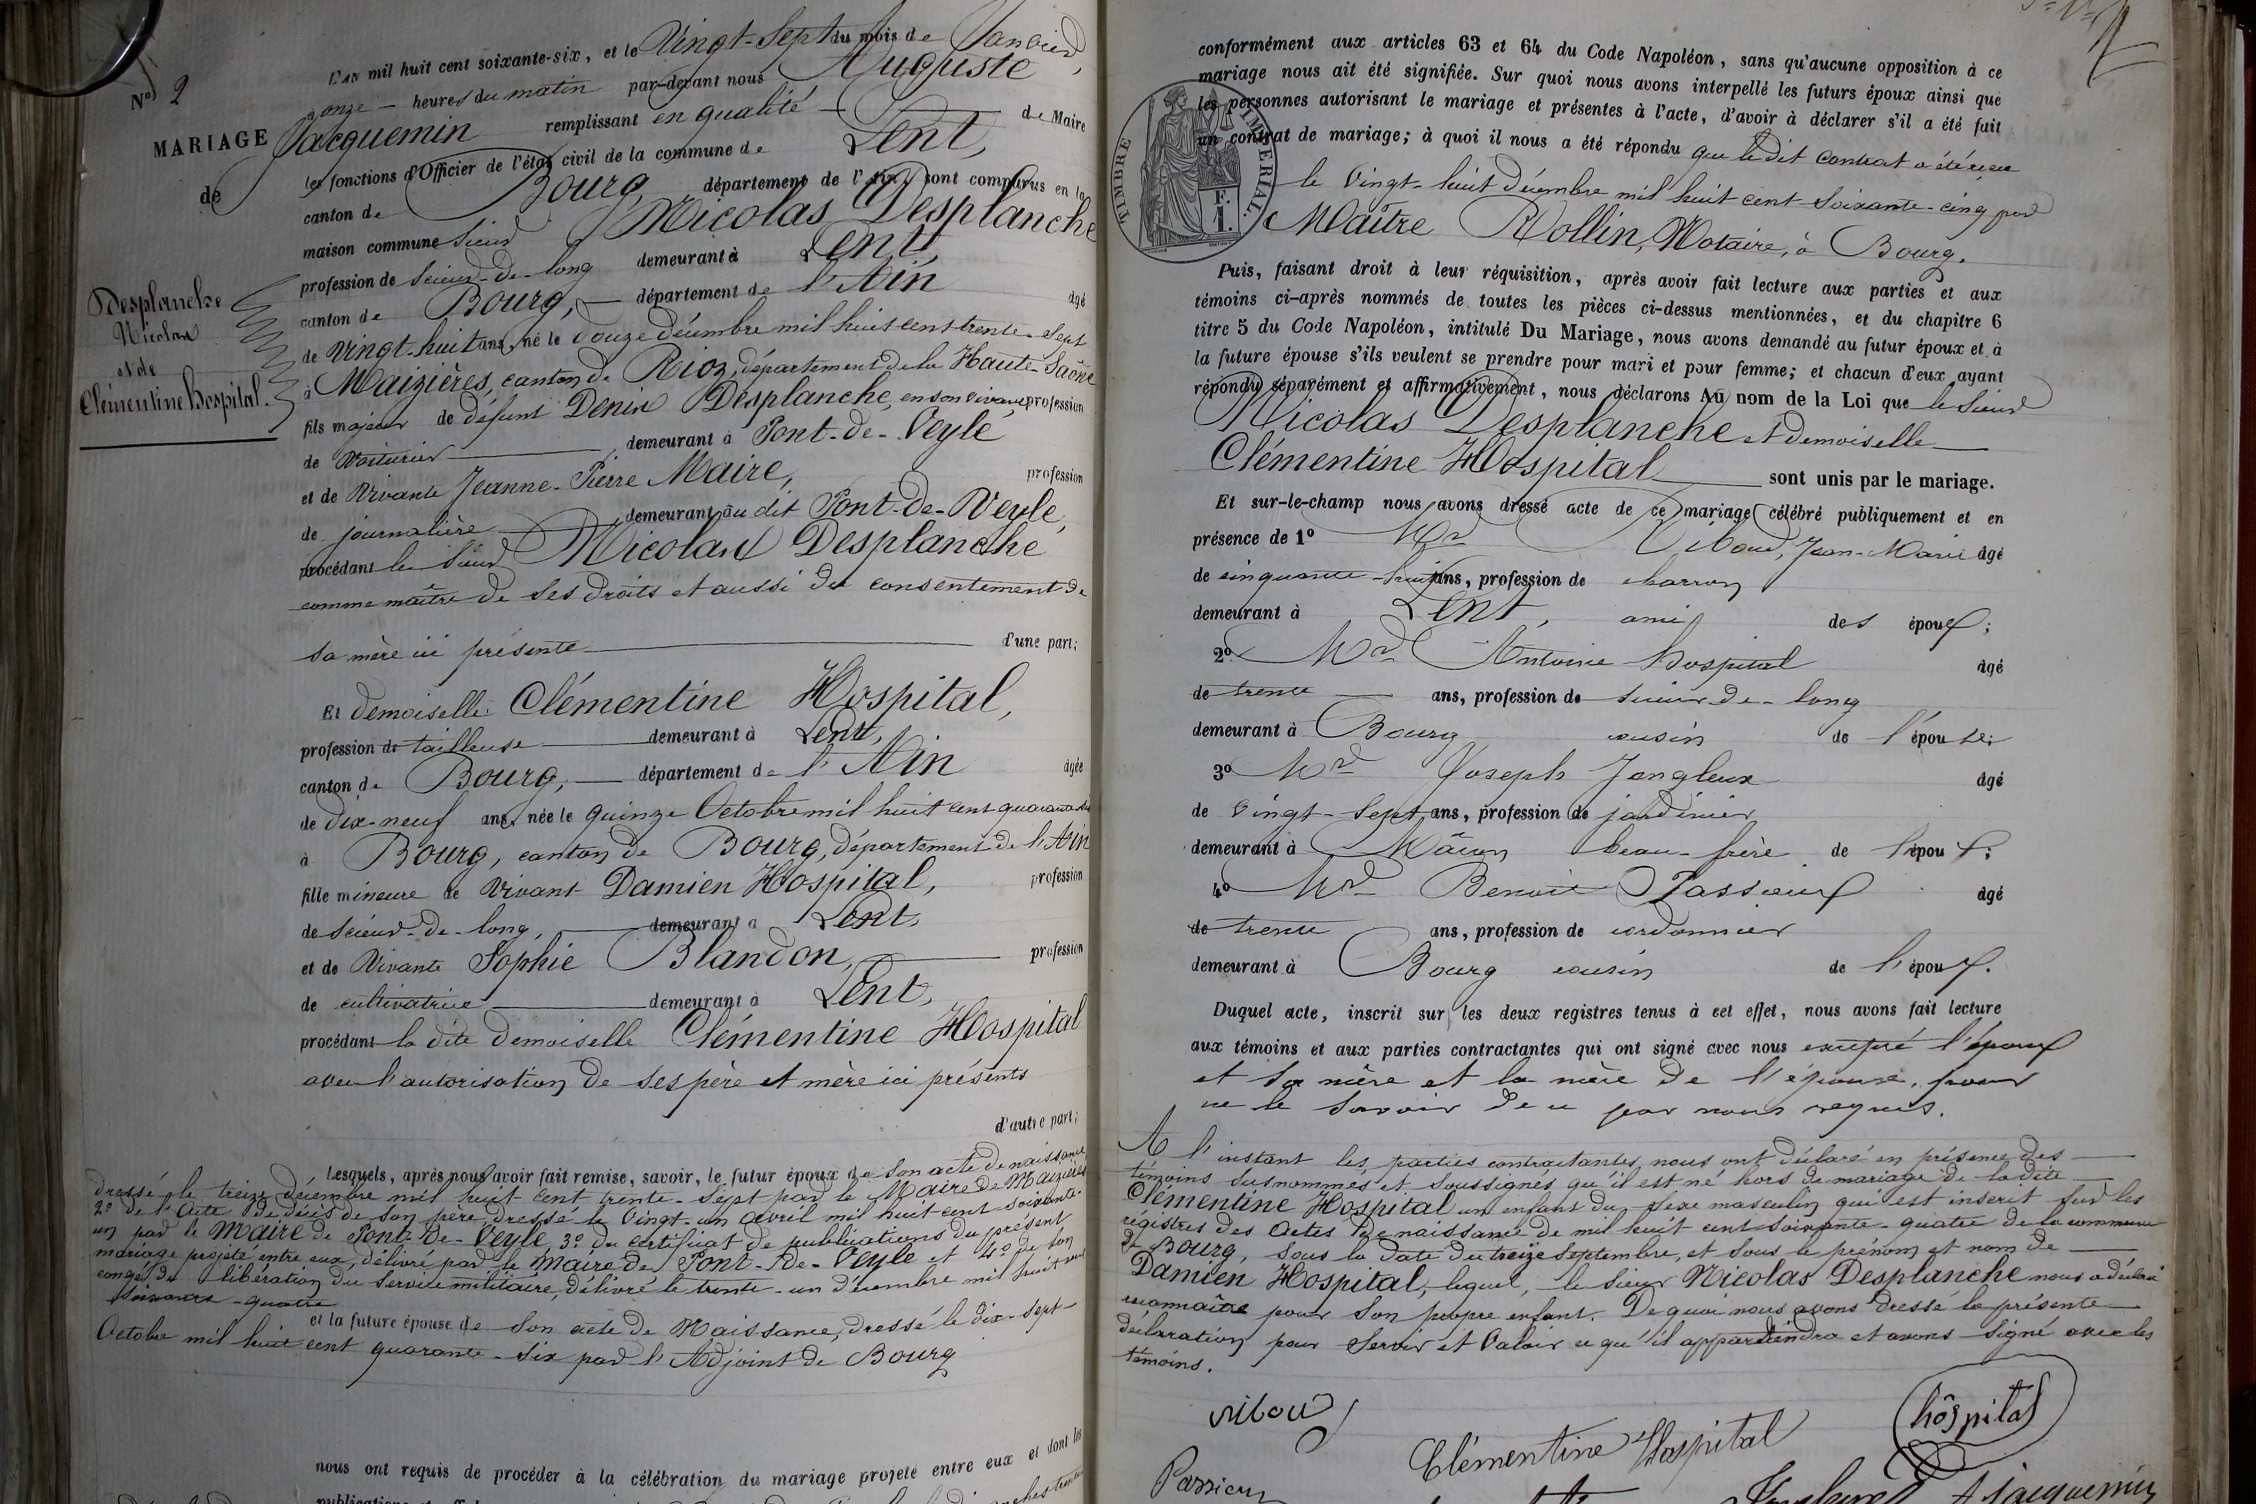 N° 2
MARIAGE
de
Desplanche
Nicolas
et de
Clémentine hospital.
L'an mil huit cent soixante-six, et le Vingt-Sept du mois de Janvier,
à onze heures du matin par-devant nous Auguste
Jacquemin remplissant en qualité de Maire
les fonctions d'Officier de l'état civil de la commune de Lent,
canton de Bourg, département de l'Ain, sont comparus en la
maison commune Sieur Nicolas Desplanche
profession de Scieur-de-long demeurant à Lent,
canton de Bourg, département de l'Ain âgé
de Vingt-huit ans, né le Douze Décembre mil huit cent trente-sept
à Maizières, canton de Rioz, département de la Haute-Saône
fils majeur de défunt Denis Desplanche, en son vivant profession
de Voiturier demeurant à Pont-de-Veyle
et de Vivante Jeanne-Pierre Maire, profession
de journalière demeurant au dit Pont-de-Veyle,
procédant le Sieur Nicolas Desplanche
comme maître de ses droits et aussi du consentement de
sa mère ici présente d'une part;
Et demoiselle Clémentine Hospital,
profession de tailleuse demeurant à Lent,
canton de Bourg, département de l'Ain âgée
de dix-neuf ans, née le quinze Octobre mil huit cent quarante-six
à Bourg, canton de Bourg, département de l'Ain
fille mineure de Vivant Damien Hospital, profession
de Scieur-de-long, demeurant à Lent,
et de Vivante Sophie Blandon, profession
de cultivatrice demeurant à Lent,
procédant la dite demoiselle Clémentine Hospital
avec l'autorisation de ses père et mère ici présents
d'autre part;
Lesquels, après nous avoir fait remise, savoir, le futur époux de son acte de naissance
dressé le treize décembre mil huit cent trente-sept par le Maire de Maizières
2° de l'acte de décès de son père, dressé le Vingt-un avril mil huit cent soixante-
un par le Maire de Pont-de-Veyle, 3° du certificat de publications du présent
mariage projeté entre eux, délivré par le Maire de Pont-de-Veyle et 4° de son
congé de libération du service militaire, délivré le trente-un décembre mil huit cent
soixante-quatre
et la future épouse de son acte de Naissance, dressé le dix-sept
Octobre mil huit cent quarante-six par l'Adjoint de Bourg
nous ont requis de procéder à la célébration du mariage projeté entre eux et dont les
conformément aux articles 63 et 64 du Code Napoléon, sans qu'aucune opposition à ce
mariage nous ait été signifiée. Sur quoi nous avons interpellé les futurs époux ainsi que
les personnes autorisant le mariage et présentes à l'acte, d'avoir à déclarer s'il a été fait
un contrat de mariage; à quoi il nous a été répondu que le dit Contrat a été reçu
TIMBRE IMPÉRIAL.
F.
1.
le Vingt-huit Décembre mil huit cent soixante-cinq par
Maître Rollin, Notaire, à Bourg.
Puis, faisant droit à leur réquisition, après avoir fait lecture aux parties et aux
témoins ci-après nommés de toutes les pièces ci-dessus mentionnées, et du chapitre 6
titre 5 du Code Napoléon, intitulé Du Mariage, nous avons demandé au futur époux et à
la future épouse s'ils veulent se prendre pour mari et pour femme; et chacun d'eux ayant
répondu séparément et affirmativement, nous déclarons Au nom de la Loi que le Sieur
Nicolas Desplanche et demoiselle
Clémentine Hospital sont unis par le mariage.
Et sur-le-champ nous avons dressé acte de ce mariage célébré publiquement et en
présence de 1° Mr Riboud, Jean-Marie âgé
de cinquante-huit ans, profession de charron
demeurant à Lent, ami des époux;
2° Mr Antoine hospital âgé
de trente ans, profession de scieur-de-long
demeurant à Bourg cousin de l'épouse;
3° Mr Joseph Jongleux âgé
de Vingt-sept ans, profession de jardinier
demeurant à Mâcon beau-frère de l'époux;
4° Mr Benoit Passieux âgé
de trente ans, profession de cordonnier
demeurant à Bourg cousin de l'époux.
Duquel acte, inscrit sur les deux registres tenus à cet effet, nous avons fait lecture
aux témoins et aux parties contractantes qui ont signé avec nous excepté l'époux
et sa mère et la mère de l'épouse, pour
ne le savoir de ce par nous requis.
A l'instant les parties contractantes nous ont déclaré en présence des
témoins susnommés et soussignés qu'il est né hors de mariage de la dite
Clémentine Hospital un enfant du sexe masculin qui est inscrit sur les
régistres des actes de naissance de mil huit cent soixante-quatre de la commune
de Bourg, sous la date du treize septembre, et sous le prénom et nom de
Damien Hospital, lequel, le Sieur Nicolas Desplanche nous a déclaré
reconnaître pour son propre enfant. De quoi nous avons dressé la présente
déclaration pour servir et valoir ce qu'il appartiendra et avons signé avec les
témoins.
riboud
Clémentine Hospital
hôspital
Passieux
A Jacquemin